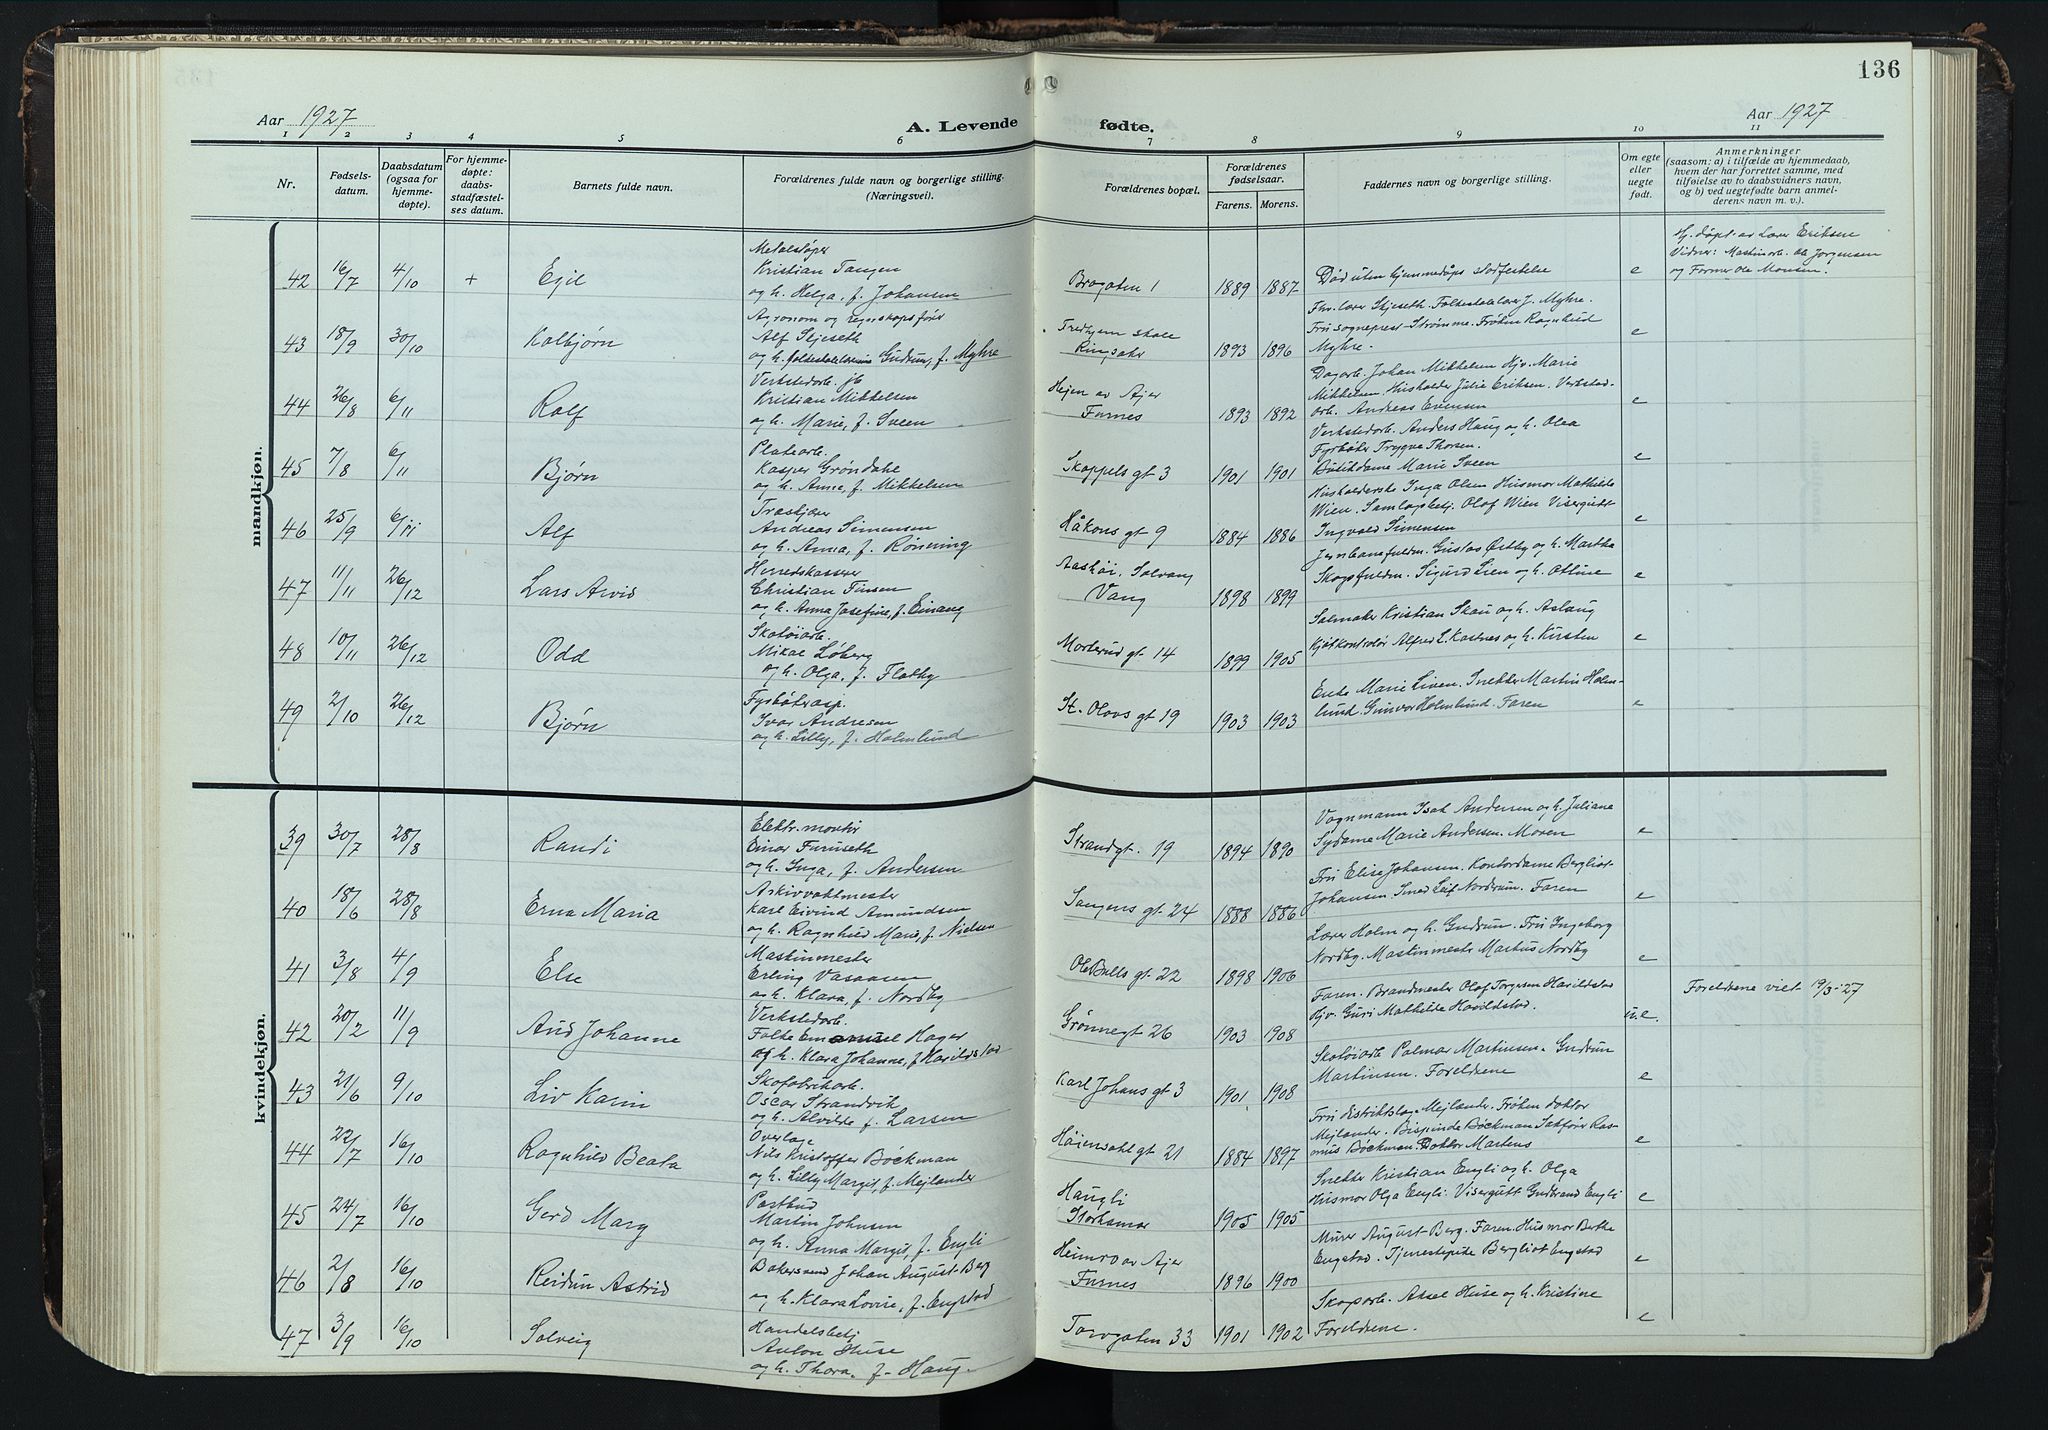 136
Aar 1927
A. Levende fødte.
Aar 1927
1 2 3 4 5 6 7 8 9 10 11
Nr.
Fødsels-
datum.
Daabsdatum
(ogsaa for
hjemme-
døpte).
For hjemme-
døpte:
daabs-
stadfæstel-
ses datum.
Barnets fulde navn.
Forældrenes fulde navn og borgerlige stilling.
(Næringsvei).
Forældrenes bopæl.
Forældrenes
fødselsaar.
Farens. Morens.
Faddernes navn og borgerlige stilling.
Om egte
eller
uegte
født.
Anmerkninger
(saasom: a) i tilfælde av hjemmedaab,
hvem der har forrettet samme, med
tilføielse av to daabsvidners navn,
og b) ved uegtefødte barn anmel-
derens navn m. v.).
mandkjøn.
42 16/7 4/10 + Egil
Metalstøper
Kristian Tangen
og h. Helga, f. Johansen
Brogaten 1 1889 1887
Død uten hjemmedåps stadfestelse
e
Hj. døpt av Lærer Eriksen
Vidner: Maskinarb. Ole Jørgensen
og Former Ole Monsen.
43 18/9 30/10 Kolbjørn
Agronom og regnskapsfører
Alf Skjeseth
og h. folkeskolelærerinne Gudrun, f. Myhre
Tredhjem skole
Ringsaker 1893 1896
Fhv. lærer Skjeseth. Folkeskolelærer J. Myhre.
Fru sogneprest Strømme. Frøken Ragnhild
Myhre.
e
44 26/8 6/11 Rolf
Verkstedarb.
Kristian Mikkelsen
og h. Marie, f. Sveen
Hejen av Ajer
Furnes 1893 1892
Dagarb. Johan Mikkelsen Hjv. Marie
Mikkelsen. Husholder Julie Eriksen. Verksted-
arb. Andreas Evensen
e
45 7/8 6/11 Bjørn
Platearb.
Kasper Grøndahl
og h. Anna, f. Mikkelsen
Skappels gt 3 1901 1901
Verkstedarb. Anders Haug og h. Olea
Fyrbøter Trygve Thorsen.
Butikdame Marie Sveen
e
46 25/9 6/11 Alf
Træskjærer
Andreas Simensen
og h. Anna, f. Rønning
Håkons gt 9 1884 1886
Husholderske Inga Olsen Husmor Mathilde
Wien. Samlagsbetj. Olaf Wien Visergutt
Ingvald Simensen
e
47 11/11 26/12 Lars Arvid
Herredskasserer
Christian Finsen
og h. Anna Josefine, f. Einang
Aashøi, Solvang
Vang 1898 1899
Jernbanefuldm. Gustav Østby og h. Martha
Skogsfuldm. Sigurd Lien og h. Otline
e
48 10/11 26/12 Odd
Skotøiarb.
Mikal Løberg
og h. Olga, f. Flatby
Morterud gt 14 1899 1905
Salmaker Kristian Skau og h. Aslaug
Kjøtkontrolør Alfred L. Kastnes og h. Kirsten
e
49 2/10 26/12 Bjørn
Fyrbøterasp.
Ivar Andresen
og h. Lilly, f. Holmlund
St. Olavs gt 19 1903 1903
Enke Marie Liven. Snekker Martin Holm-
lund. Gunvor Holmlund. Faren
e
kvindekjøn.
39 30/7 28/8 Randi
Elektr. montør
Einar Furuseth
og h. Inga, f. Andersen
Strandgt. 19 1894 1890
Vognmann Isak Andersen og h. Juliane
Sydame Marie Andersen. Moren
e
40 18/6 28/8 Erna Maria
Arkivvaktmester
Karl Eivind Amundsen
og h. Ragnhild Marie, f. Nielsen
Vangens gt 24 1888 1886
Fru Elise Johansen. Kontordame Bergliot
Johansen. Smed Leif Nordrum. Faren
e
41 3/8 4/9 Else
Maskinmester
Erling Vasaasen
og h. Klara, f. Nordby
Ole Bulls gt 22 1898 1906
Lærer Holm og h. Gudrun. Fru Ingeborg
Nordby. Maskinmester Markus Nordby
e
42 20/2 11/9 Aud Johanne
Verkstedarb.
Folke Emanuel Hager
og h. Klara Johanne, f. Harildstad
Grønnegt 26 1903 1908
Faren. Brandmester Olaf Torgersen Harildstad
Hjv. Guri Mathilde Harildstad.
u.e.
Foreldrene viet 19/3-27
43 21/6 9/10 Liv Karin
Skofabrikarb.
Oscar Strandvik
og h. Alvilde f. Larsen
Karl Johans gt 3 1901 1908
Skotøiarb Palmar Martinsen. Gudrun
Martinsen. Foreldrene
e
44 22/7 16/10 Ragnhild Beata
Overlæge
Nils Kristoffer Bøckman
og h. Lilly Margit, f. Mejlænder
Høiensahl gt 21 1884 1897
Fru distriktslæge Mejlænder. Frøken doktor
Mejlænder. Bispinde Bøckman Sakfører Ras-
mus Bøckman. Doktor Martens
e
45 24/7 16/10 Gerd Marg
Postbud
Martin Johnsen
og h. Anna Margit, f. Engli
Haugli
Storhamar 1905 1905
Snekker Kristian Engli og h. Olga
Husmor Olga Engli. Visergutt Gudbrand Engli
e
46 2/8 16/10 Reidun Astrid
Bakersvend Johan August Berg
og h. Klara Lovise, f. Engstad
Heimro av Ajer
Furnes 1896 1900
Murer August Berg. Faren. Husmor Berthe
Engstad. Tjenestepike Bergliot Engstad
e
47 3/9 16/10 Solveig
Handelsbetj
Anton Huse
og h. Thora, f. Haug.
Torvgaten 33 1901 1902
Skoparb. Aksel Huse og h. Kristine
Foreldrene.
e